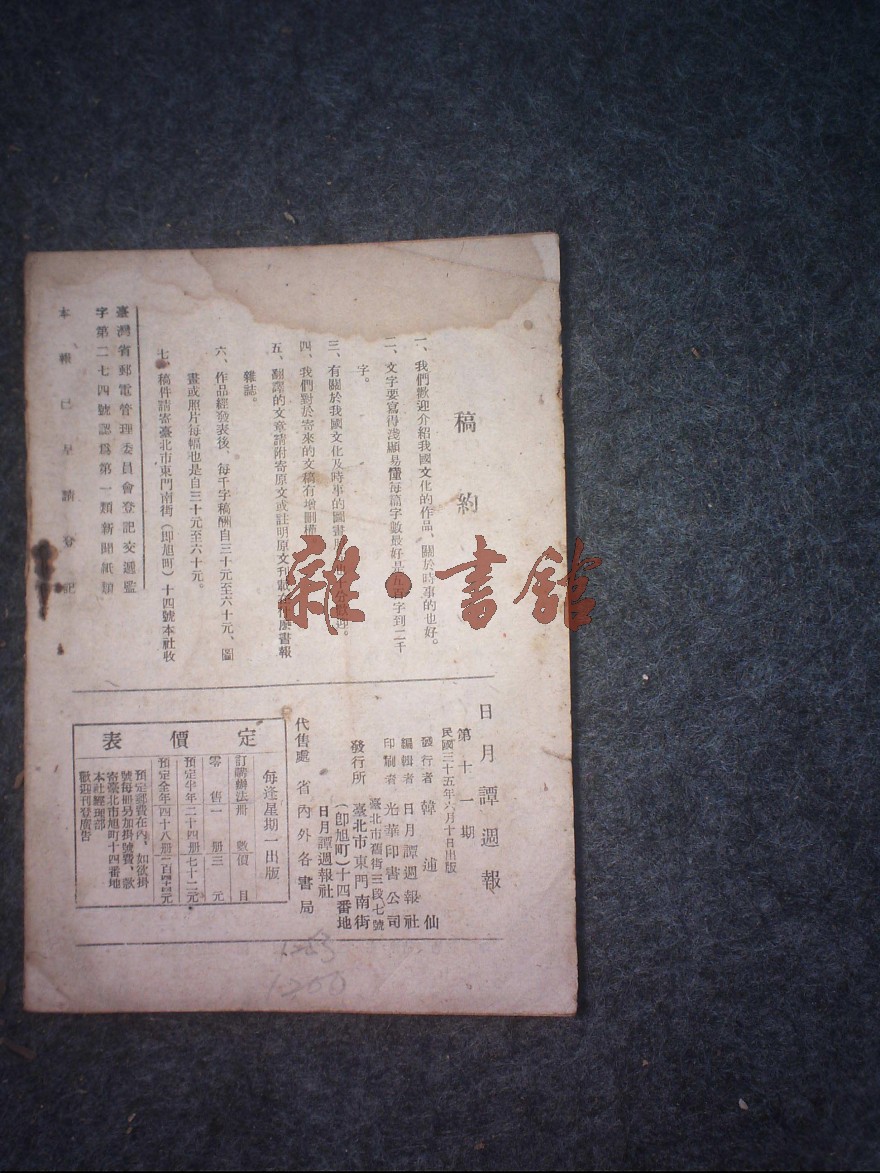 稿約
一、我們歡迎介紹我國文化的作品、關於時事的也好。
二、文字要寫得淺顯易懂每篇字數最好是五百字到二千
字。
三、有關於我國文化及時事的圖畫
四、我們對於寄來的文稿有增刪權
五、翻譯的文章請附寄原文或註明原文刊載在什麼書報
雜誌。
六、作品經發表後、每千字稿酬自三十元至六十元、圖
畫或照片每幅也是自三十元至六十元。
七、稿件請寄臺北市東門南街(即旭町)十四號本社收
臺灣省郵電管理委員會登記交通監
字第二七四號認爲第一類新聞紙類
本報已呈請登記
日月譚週報
第十一期
民國三十五年六月十日出版
發行者 韓逋仙
編輯者 日月譚週報社
印刷者 光華印書公司
臺北市舊街三段七號
發行所 臺北市東門南街
(即旭町)十四番地
日月譚週報社
代售處 省內外各書局
定價表
每逢星期一出版
訂購辦法 册數 價目
零售 一册 三元
預定半年 二十四册 七十二元
預定全年 四十八册 一百四十四元
預定郵費在內、如欲掛
號每册另加掛號費、款
寄臺北市旭町十四番地
本社經理部
歡迎刊登廣告
雜·書館
1200